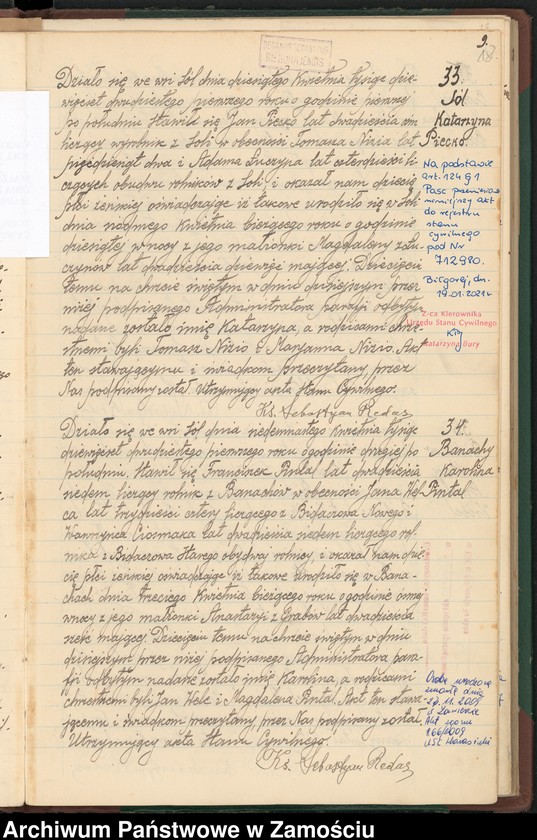 9.
33.
Sól
Katarzyna
Piecko.
Działo się we wsi Sól dnia dziesiątego Kwietnia tysiąc dzie-
więćset dwudziestego pierwszego roku o godzinie pierwszej
po południu. Stawił się Jan Piecko lat dwadzieścia
liczący wyrobnik z Soli w obecności Tomasza Nizia lat
pięćdziesiąt dwa i Adama lat czterdzieści li-
czących obudwu rolników z Soli, i okazał nam dziecię
płci żeńskiej oświadczając iż takowe urodziło się w Soli
dnia siódmego Kwietnia bieżącego roku o godzinie
dziesiątej w nocy z jego małżonki Magdaleny
lat dwadzieścia dziewięć mającej. Dziecięciu
temu na chrzcie świętym w dniu dzisiejszym przez
niżej podpisanego Administratora parafji odbytym
nadane zostało imię Katarzyna, a rodzicami chrze-
stnemi byli Tomasz Nizio i Marjanna Nizio. Akt
ten stawającemu i świadkom przeczytany, przez
Nas podpisany został. Utrzymujący akta Stanu Cywilnego.
Ks. Sebastyan Redas
Na podstawie
art. 124 § 1
Pasc przeniesiono
niniejszy akt
do rejestru
stanu
cywilnego
pod Nr
712980.
Biłgoraj, dn.
19.01.2021r
Z-ca Kierownika
Urzędu Stanu Cywilnego
Katarzyna Bury
34.
Banachy
Karolina
Pintal
Działo się we wsi Sól dnia siedemnastego Kwietnia tysiąc
dziewięćset dwudziestego pierwszego roku o godzinie drugiej po
południu. Stawił się Franciszek Pintal lat dwadzieścia
siedem liczący rolnik z Banachów w obecności Jana Wel-
ca lat trzydzieści cztery liczącego z Bidaczowa Nowego i
Wawrzyńca Ciosmaka lat dwadzieścia siedem liczącego rol-
nika z Bidaczowa Starego obydwaj rolnicy, i okazał nam dzie-
cię płci żeńskiej oświadczając iż takowe urodziło się w Bana-
chach dnia trzeciego Kwietnia bieżącego roku o godzinie ósmej
w nocy z jego małżonki Anastazji z Grabów lat dwadzieścia
mającej. Dziecięciu temu na chrzcie świętym w dniu
dzisiejszym przez niżej podpisanego Administratora para-
fji odbytym nadane zostało imię Karolina, a rodzicami
chrzestnemi byli Jan Welc i Magdalena Pintal. Akt ten stawa-
jącemu i świadkom przeczytany, przez Nas podpisany został.
Utrzymujący akta Stanu Cywilnego.
Ks. Sebastyan Redas
Osoba urodzona
zmarła dnia
11.2009
w Zamościu
Akt zgonu
166/2009
USC
Archiwum Państwowe w Zamościu